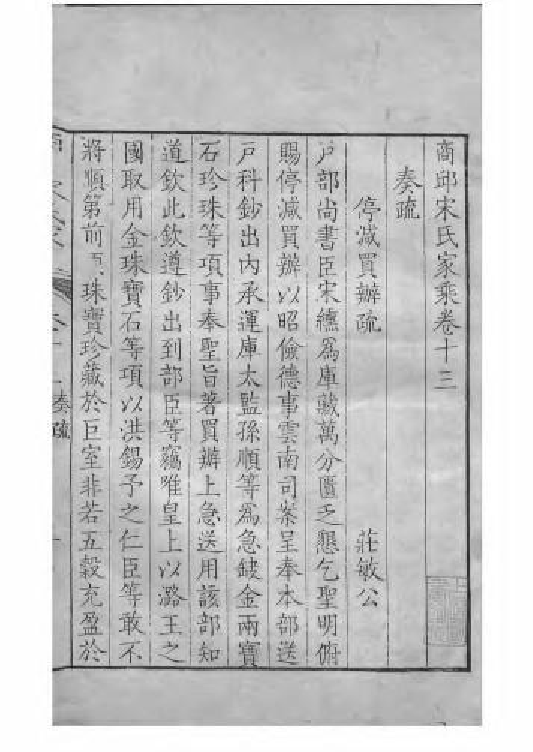 商邱宋氏家乘卷十三
奏疏
停減買辦疏 莊敏公
戸部尚書臣宋纁爲庫藏萬分匱乏懇乞聖明俯
賜停減買辦以昭儉德事雲南司案呈奉本部送
戸科鈔出內承運庫太監孫順等爲急缺金兩寶
石珍珠等項事奉聖旨著買辦上急送用該部知
道欽此欽遵鈔出到部臣等竊唯皇上以潞王之
國取用金珠寶石等項以洪錫予之仁臣等敢不
將順第前項珠寶珍藏於巨室非若五穀充盈於
奏疏